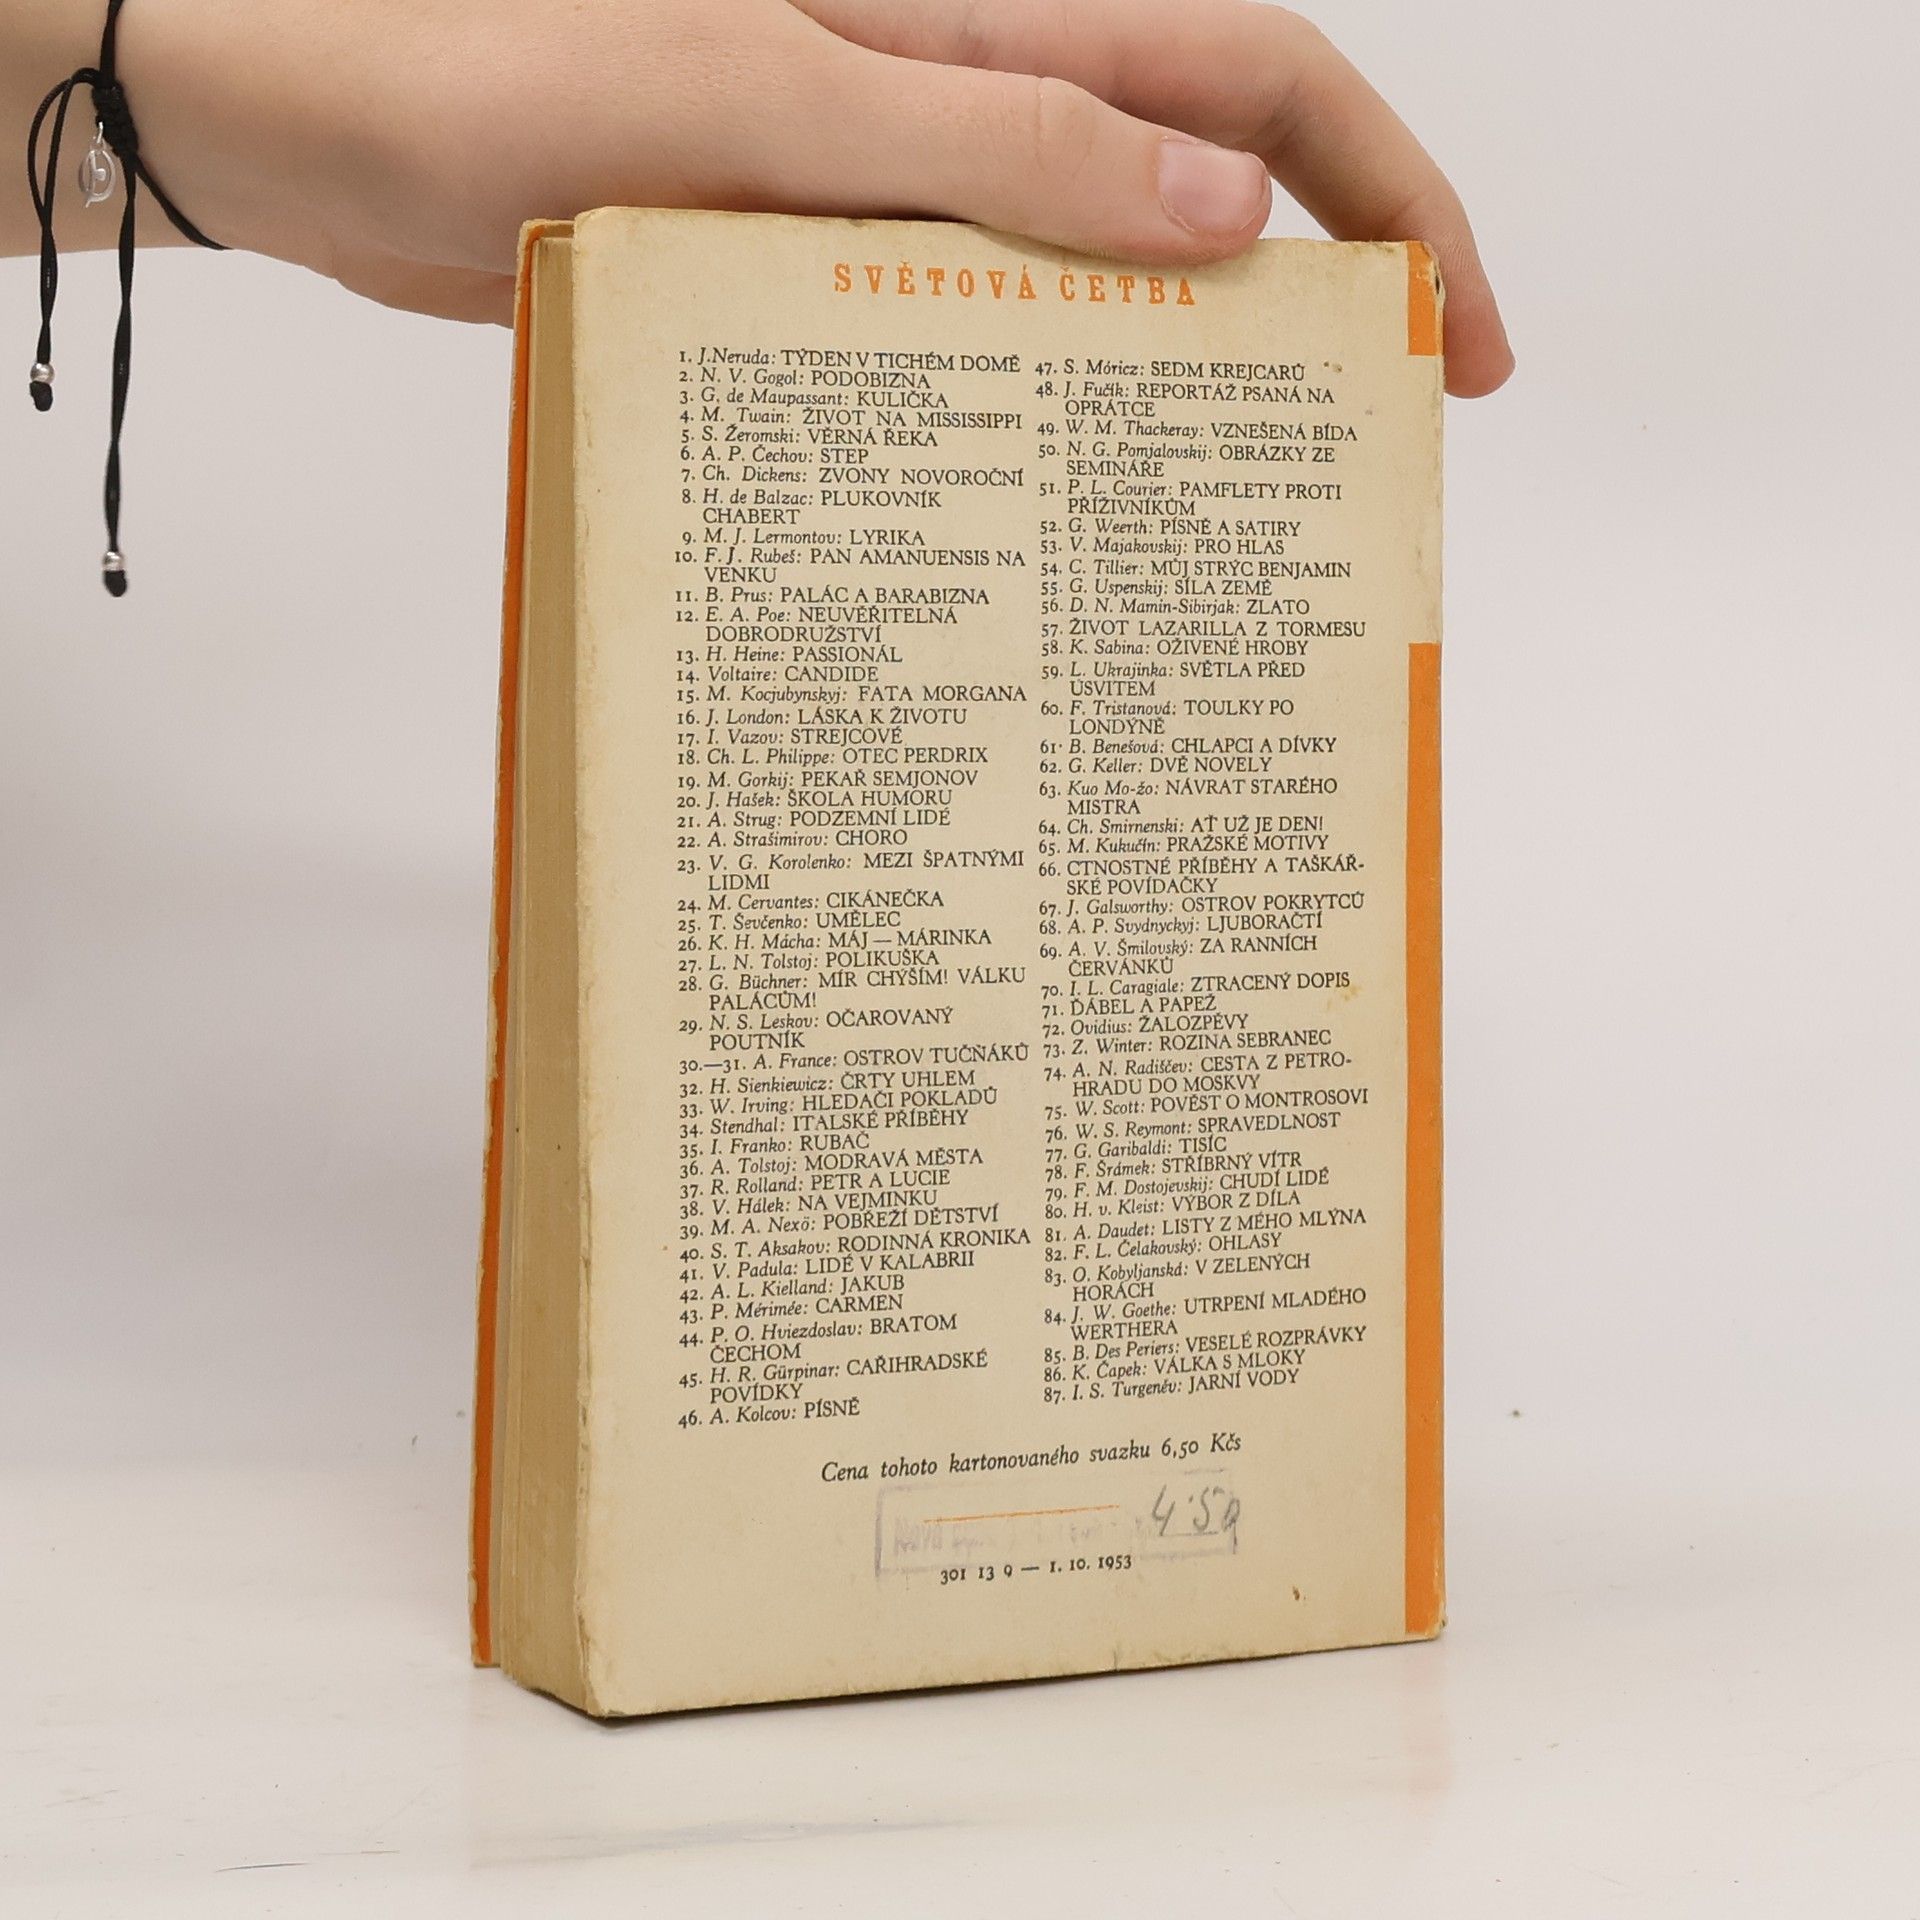 SVĚTOVÁ ČETBA
1. J.Neruda: TÝDEN V TICHÉM DOMĚ
2. N. V. Gogol: PODOBIZNA
3. G. de Maupassant: KULIČKA
4. M. Twain: ŽIVOT NA MISSISSIPPI
5. S. Žeromski: VĚRNÁ ŘEKA
6. A. P. Čechov: STEP
7. Ch. Dickens: ZVONY NOVOROČNÍ
8. H. de Balzac: PLUKOVNÍK
CHABERT
9. M. J. Lermontov: LYRIKA
10. F. J. Rubeš: PAN AMANUENSIS NA
VENKU
11. B. Prus: PALÁC A BARABIZNA
12. E. A. Poe: NEUVĚŘITELNÁ
DOBRODRUŽSTVÍ
13. H. Heine: PASSIONÁL
14. Voltaire: CANDIDE
15. M. Kocjubynskyj: FATA MORGANA
16. J. London: LÁSKA K ŽIVOTU
17. I. Vazov: STREJCOVÉ
18. Ch. L. Philippe: OTEC PERDRIX
19. M. Gorkij: PEKAŘ SEMJONOV
20. J. Hašek: ŠKOLA HUMORU
21. A. Strug: PODZEMNÍ LIDÉ
22. A. Strašimirov: CHORO
23. V. G. Korolenko: MEZI ŠPATNÝMI
LIDMI
24. M. Cervantes: CIKÁNEČKA
25. T. Ševčenko: UMĚLEC
26. K. H. Mácha: MÁJ — MÁRINKA
27. L. N. Tolstoj: POLIKUŠKA
28. G. Büchner: MÍR CHÝŠÍM! VÁLKU
PALÁCŮM!
29. N. S. Leskov: OČAROVANÝ
POUTNÍK
30.—31. A. France: OSTROV TUČŇÁKŮ
32. H. Sienkiewicz: ČRTY UHLEM
33. W. Irving: HLEDAČI POKLADŮ
34. Stendhal: ITALSKÉ PŘÍBĚHY
35. I. Franko: RUBAČ
36. A. Tolstoj: MODRAVÁ MĚSTA
37. R. Rolland: PETR A LUCIE
38. V. Hálek: NA VEJMINKU
39. M. A. Nexö: POBŘEŽÍ DĚTSTVÍ
40. S. T. Aksakov: RODINNÁ KRONIKA
41. V. Padula: LIDÉ V KALABRII
42. A. L. Kielland: JAKUB
43. P. Mérimée: CARMEN
44. P. O. Hviezdoslav: BRATOM
ČECHOM
45. H. R. Gürpinar: CAŘIHRADSKÉ
POVÍDKY
46. A. Kolcov: PÍSNĚ
47. S. Móricz: SEDM KREJCARŮ
48. J. Fučík: REPORTÁŽ PSANÁ NA
OPRÁTCE
49. W. M. Thackeray: VZNEŠENÁ BÍDA
50. N. G. Pomjalovskij: OBRÁZKY ZE
SEMINÁŘE
51. P. L. Courier: PAMFLETY PROTI
PŘÍŽIVNÍKŮM
52. G. Weerth: PÍSNĚ A SATIRY
53. V. Majakovskij: PRO HLAS
54. C. Tillier: MŮJ STRÝC BENJAMIN
55. G. Uspenskij: SÍLA ZEMĚ
56. D. N. Mamin-Sibirjak: ZLATO
57. ŽIVOT LAZARILLA Z TORMESU
58. K. Sabina: OŽIVENÉ HROBY
59. L. Ukrajinka: SVĚTLA PŘED
ÚSVITEM
60. F. Tristanová: TOULKY PO
LONDÝNĚ
61. B. Benešová: CHLAPCI A DÍVKY
62. G. Keller: DVĚ NOVELY
63. Kuo Mo-žo: NÁVRAT STARÉHO
MISTRA
64. Ch. Smirnenski: AŤ UŽ JE DEN!
65. M. Kukučín: PRAŽSKÉ MOTIVY
66. CTNOSTNÉ PŘÍBĚHY A TAŠKÁŘ-
SKÉ POVÍDAČKY
67. J. Galsworthy: OSTROV POKRYTCŮ
68. A. P. Svydnyckyj: LJUBORAČTÍ
69. A. V. Šmilovský: ZA RANNÍCH
ČERVÁNKŮ
70. I. L. Caragiale: ZTRACENÝ DOPIS
71. ĎÁBEL A PAPEŽ
72. Ovidius: ŽALOZPĚVY
73. Z. Winter: ROZINA SEBRANEC
74. A. N. Radiščev: CESTA Z PETRO-
HRADU DO MOSKVY
75. W. Scott: POVĚST O MONTROSOVI
76. W. S. Reymont: SPRAVEDLNOST
77. G. Garibaldi: TISÍC
78. F. Šrámek: STŘÍBRNÝ VÍTR
79. F. M. Dostojevskij: CHUDÍ LIDÉ
80. H. v. Kleist: VÝBOR Z DÍLA
81. A. Daudet: LISTY Z MÉHO MLÝNA
82. F. L. Čelakovský: OHLASY
83. O. Kobyljanská: V ZELENÝCH
HORÁCH
84. J. W. Goethe: UTRPENÍ MLADÉHO
WERTHERA
85. B. Des Periers: VESELÉ ROZPRÁVKY
86. K. Čapek: VÁLKA S MLOKY
87. I. S. Turgeněv: JARNÍ VODY
Cena tohoto kartonovaného svazku 6,50 Kčs
4·50
301 13 9 — 1. 10. 1953